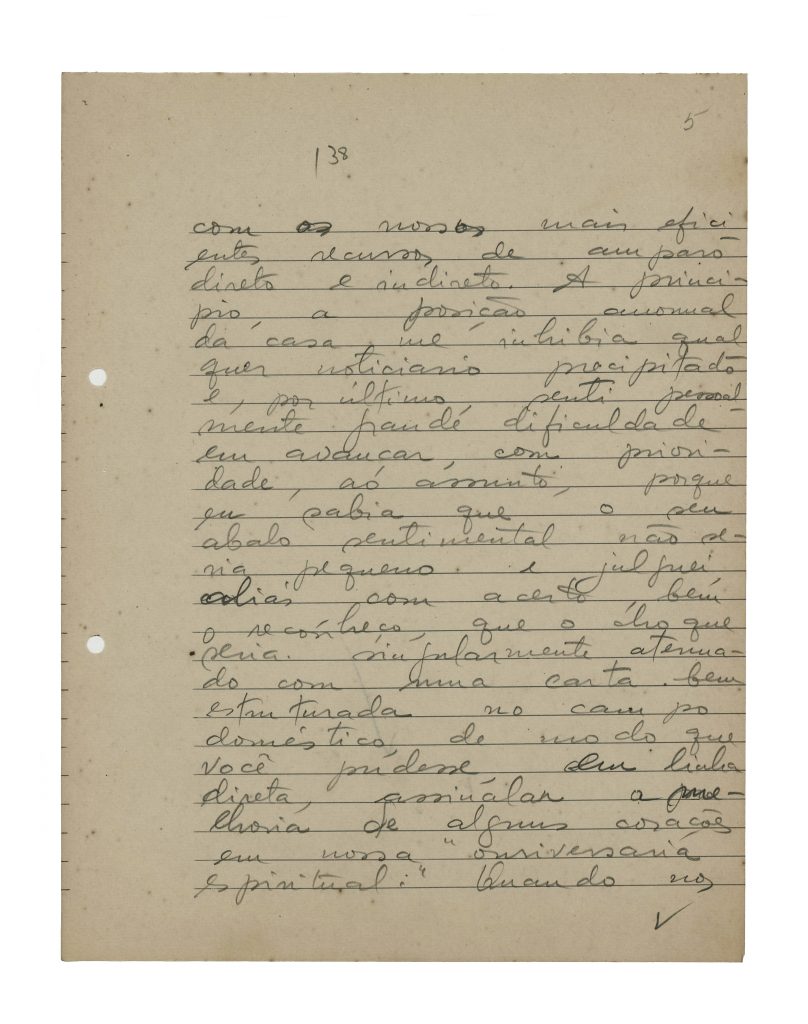 5
138
com os nossos mais efici
entes recursos de amparo
direto e indireto. A princi-
pio a posição anormal
da casa me inhibia qual
quer noticiario precipitado
e, por último senti pessoal-
mente grande dificuldade
em avançar, com priori-
dade, ao assunto, porque
eu sabia que o seu
abalo sentimental não se-
ria pequeno e julguei
aliás com acerto, bem
o reconheço, que o choque
seria singularmente atenua-
do com uma carta bem
estruturada no campo
doméstico, de modo que
você pudesse em linha
direta, assinalar a me-
lhoria de alguns corações
em nossa "
espiritual." Quando nos